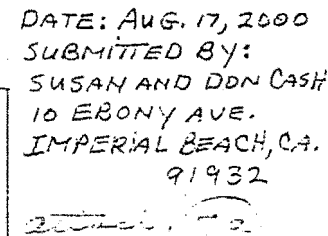 DATE: AUG. 17, 2000
SUBMITTED BY:
SUSAN AND DON CASH
10 EBONY AVE.
IMPERIAL BEACH, CA.
91932